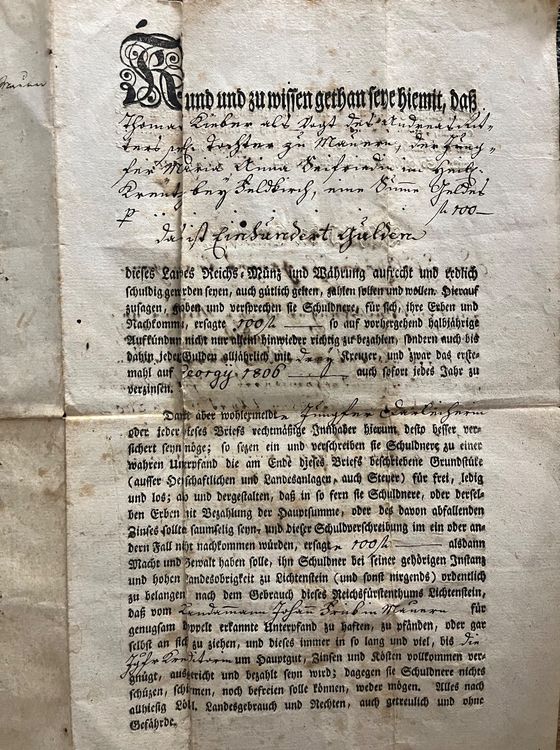 Kund und zu wissen gethan seye hiemit, daß
Thomas Kieber als Vogt des Andreas Rit-
ters Tochter zu Mauern, der Jung-
fer Maria Anna Seifriedin im Heil.
Kreutz bey Feldkirch, eine Sume Geldes
p fl 100—
das ist Einhundert Gulden
dieses Landes Reichs-Münz und Währung aufrecht und redlich
schuldig geworden seyen, auch gütlich gelten, zahlen sollen und wollen. Hierauf
zusagen, globen und versprechen sie Schuldnere, für sich, ihre Erben und
Nachkommen, ersagte 100 fl — so auf vorhergehend halbjährige
Aufkündung nicht nur allein hinwieder richtig zu bezahlen, sondern auch bis
dahin jeden Gulden alljährlich mit drey Kreuzer, und zwar das erste-
mahl auf Georgy 1806 — auch sofort jedes Jahr zu
verzinsen.
Damit aber wohlermeldte Jungfer Darleicherin
oder jeder dieses Briefs rechtmäßige Innhaber hierum desto besser ver-
sichert seyn möge; so sezen ein und verschreiben sie Schuldnere zu einer
wahren Unterpfand die am Ende dieses Briefs beschriebene Grundstüke
(ausser Herschaftlichen und Landesanlagen, auch Steuer) für frei, ledig
und los; also und dergestalten, daß in so fern sie Schuldnere, oder dersel-
ben Erben mit Bezahlung der Hauptsumme, oder des davon abfallenden
Zinses sollte saumselig seyn, und dieser Schuldverschreibung im ein oder an-
dern Fall nicht nachkommen würden, ersagte 100 fl — alsdann
Macht und Gewalt haben solle, ihn Schuldner bei seiner gehörigen Instanz
und hohen Landesobrigkeit zu Lichtenstein (und sonst nirgends) ordentlich
zu belangen nach dem Gebrauch dieses Reichsfürstenthums Lichtenstein,
daß vom Landamann Johann Frük in Mauern für
genugsam doppelt erkannte Unterpfand zu haften, zu pfänden, oder gar
selbst an sich zu ziehen, und dieses immer in so lang und viel, bis die
Kreditorin um Hauptgut, Zinsen und Kösten vollkommen ver-
gnügt, ausgericht und bezahlt seyn wird; dagegen sie Schuldnere nichts
schüzen, schirmen, noch befreien solle können, weder mögen. Alles nach
allhiesig Löbl. Landesgebrauch und Rechten, auch getreulich und ohne
Gefährde.